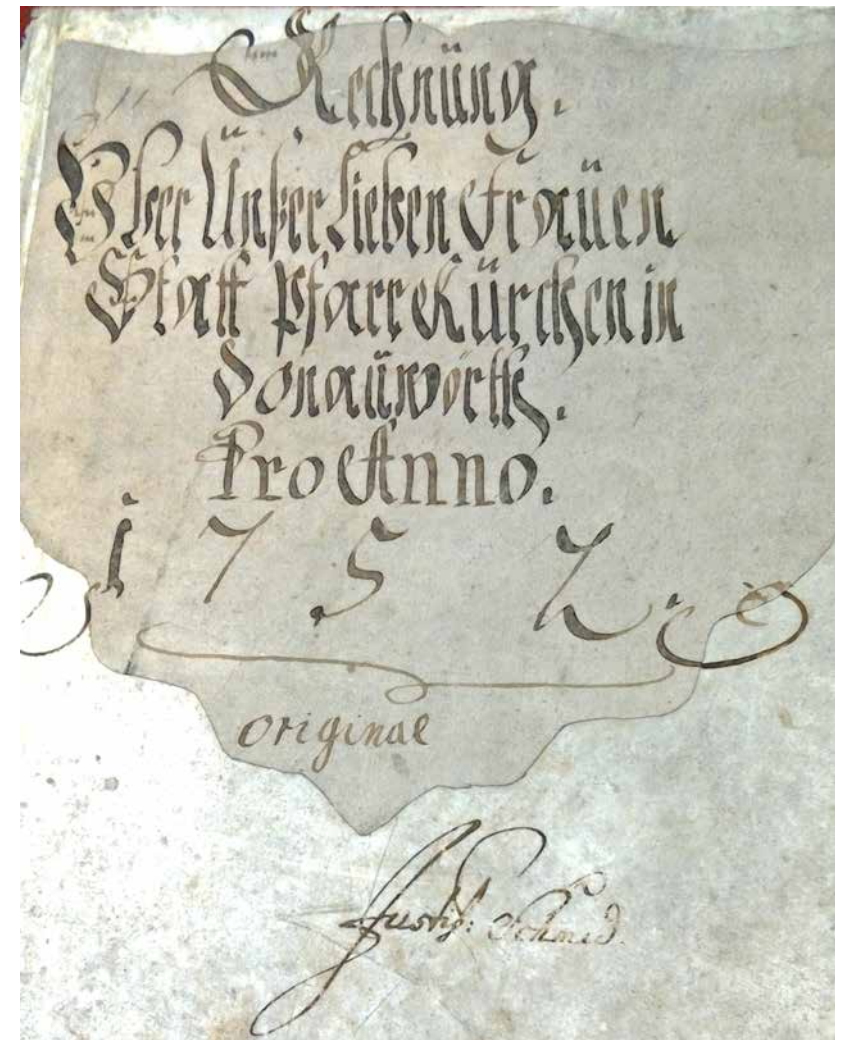 Rechnüng.
Über Ünßer Lieben Fraüen
Statt Pfarr Kürchen in
Donaüwörth.
Pro Anno.
1757.
original
Schmid.